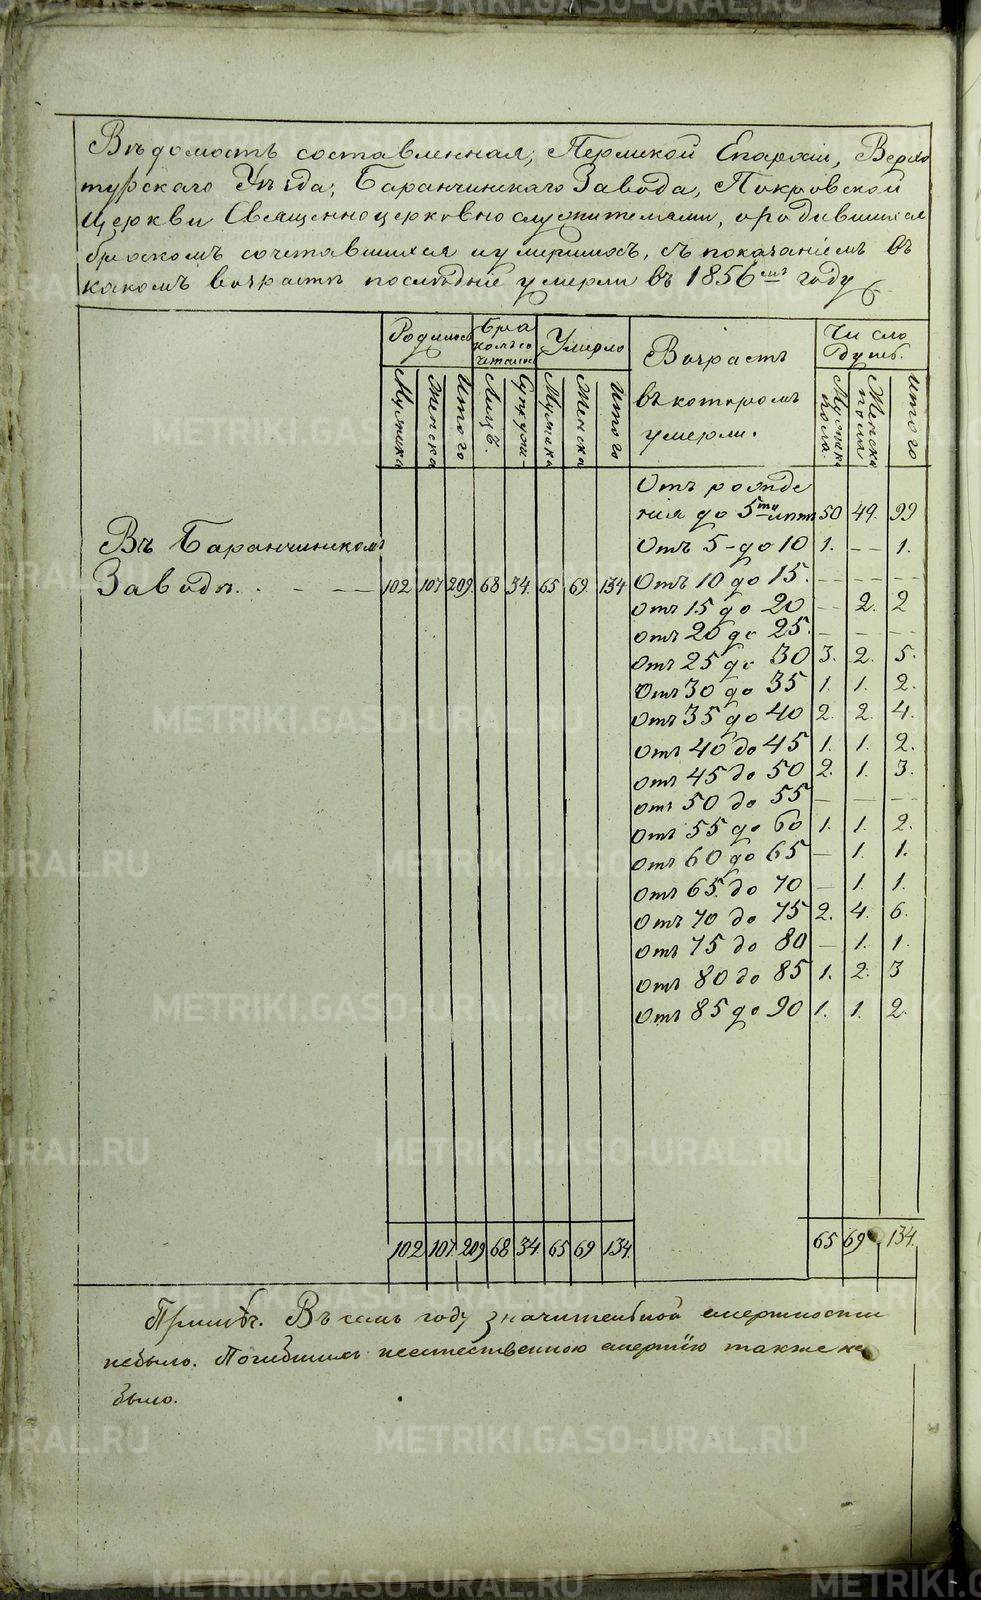 Вѣдомость составленная, Пермской Епархіи, Верхо
турскаго Уѣзда, Баранчинскаго Завода, Покровской
Церкви Священноцерковнослужителями, ородившихся
бракомъ сочетавшихся иумершихъ, съ показаніемъ въ
какомъ возрастѣ послѣдніе умерли въ 1856мъ году
Родилось Бра комъ со четалось Умерло Возрастъ въ которомъ умерли. Число душъ.
Мужска Женска Итого Лицъ. Супруж- Мужска Женска Итого Мужска пола. Женска пола Итого
Отъ рожде
нія до 5ти лѣтъ 50 49. 99
Въ Баранчинскомъ Отъ 5-до 10 1. -- 1.
Заводѣ. . - -- 102 107 209. 68 34. 65 69. 134 Отъ 10 до 15. -- -- --
отъ 15 до 20 -- 2. 2
отъ 20 до 25. - - --
отъ 25 до 30 3. 2. 5.
Отъ 30 до 35 1. 1. 2.
отъ 35 до 40 2. 2 4.
отъ 40 до 45 1. 1. 2.
отъ 45 до 50 2. 1. 3.
отъ 50 до 55 - -- --
отъ 55 до 60 1. 1. 2.
отъ 60 до 65 - 1. 1.
отъ 65 до 70 - 1. 1.
отъ 70 до 75 2. 4. 6.
отъ 75 до 80 - 1. 1.
отъ 80 до 85 1. 2. 3
отъ 85 до 90 1. 1. 2.
102 107. 209 68 34 65 69 134. 65 69 134.
Примѣч. Въ семъ году значительной смертности
небыло. Погибшихъ неестественною смертію также не
было.
METRIKI.GASO-URAL.RU